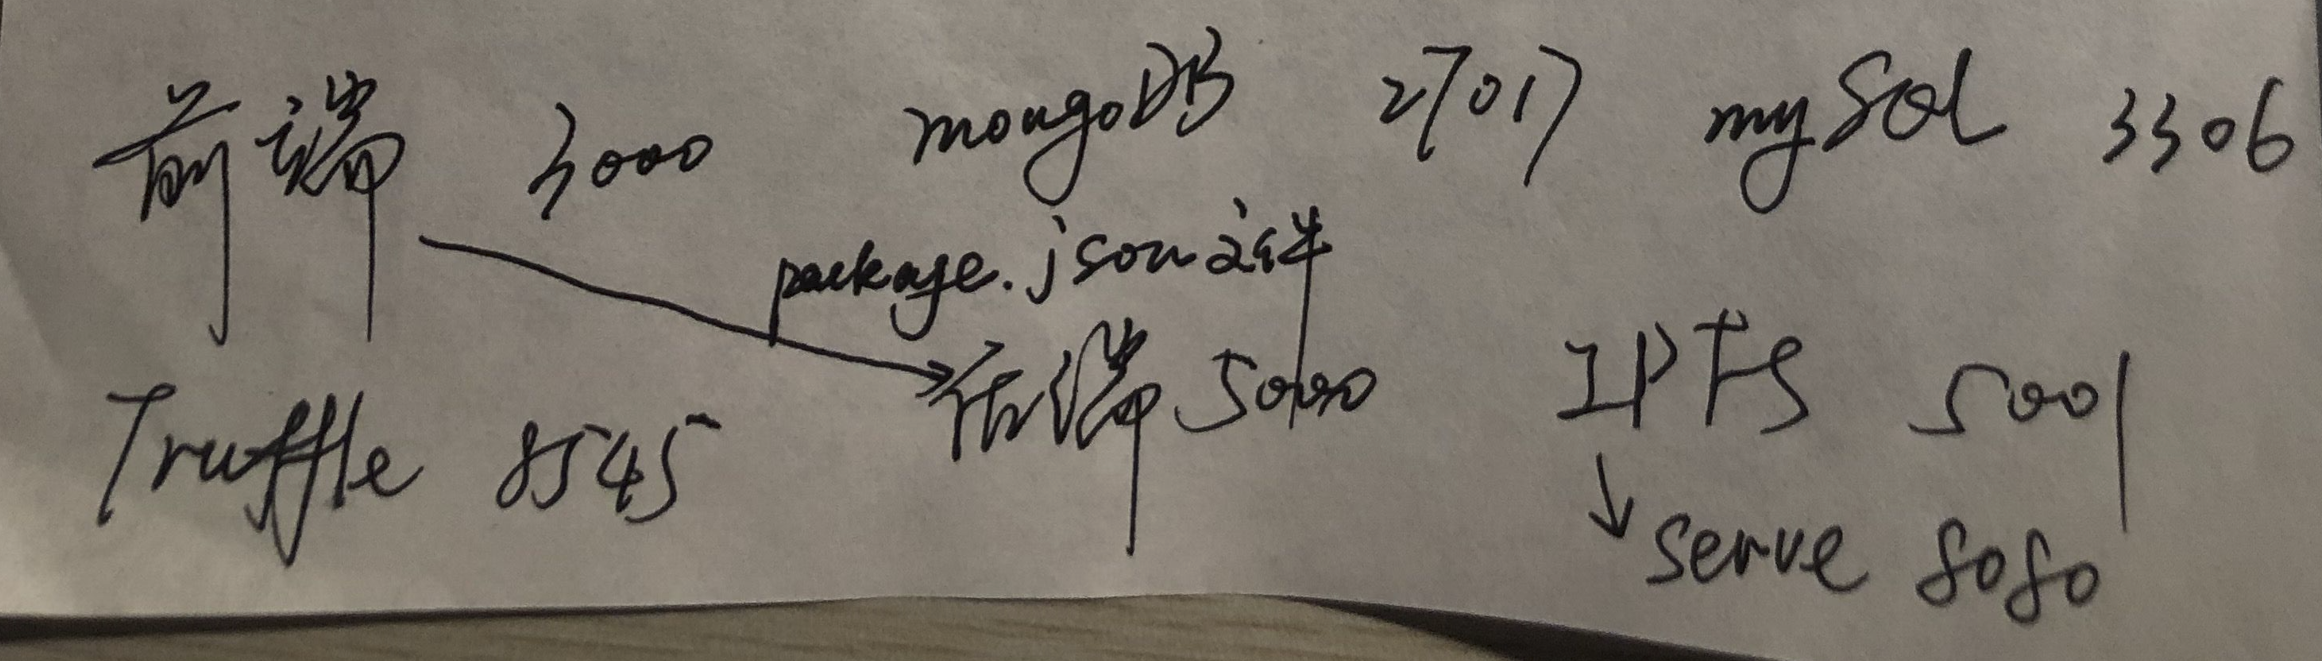 前端 3000 mongoDB 27017 mySQL 3306
package.json文件
Truffle 8545 后端 5000 IPFS 5001
serve 8080